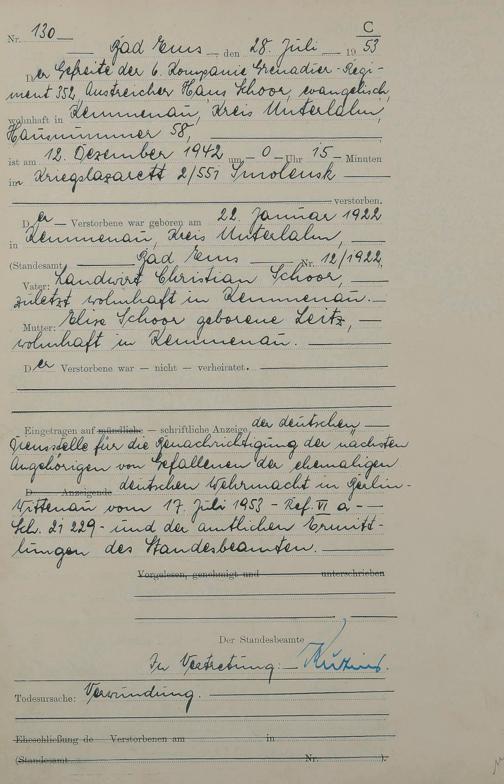 C
Nr. 130
Bad Ems, den 28. Juli 1953
Der Gefreite der 6. Kompanie Grenadier-Regi-
ment 352, Anstreicher Hans Schoor, evangelisch,
wohnhaft in Kemmenau, Kreis Unterlahn,
Hausnummer 58,
ist am 12. Dezember 1942 um 0 Uhr 15 Minuten
im Kriegslazarett 2/551 Smolensk
verstorben.
Der Verstorbene war geboren am 22. Januar 1922
in Kemmenau, Kreis Unterlahn,
(Standesamt Bad Ems Nr. 12/1922
Vater: Landwirt Christian Schoor,
zuletzt wohnhaft in Kemmenau.
Mutter: Elise Schoor geborene Leitz,
wohnhaft in Kemmenau.
Der Verstorbene war — nicht — verheiratet.
Eingetragen auf mündliche — schriftliche Anzeige der deutschen
Dienststelle für die Benachrichtigung der nächsten
Angehörigen von Gefallenen der ehemaligen
D Anzeigende deutschen Wehrmacht in Berlin-
Wittenau vom 17. Juli 1953 - Ref. VI a -
Sch. 21 229 - und der amtlichen Ermitt-
lungen des Standesbeamten.
Vorgelesen, genehmigt und unterschrieben
Der Standesbeamte
In Vertretung:
Todesursache: Verwundung.
Eheschließung de Verstorbenen am in
(Standesamt Nr. ).